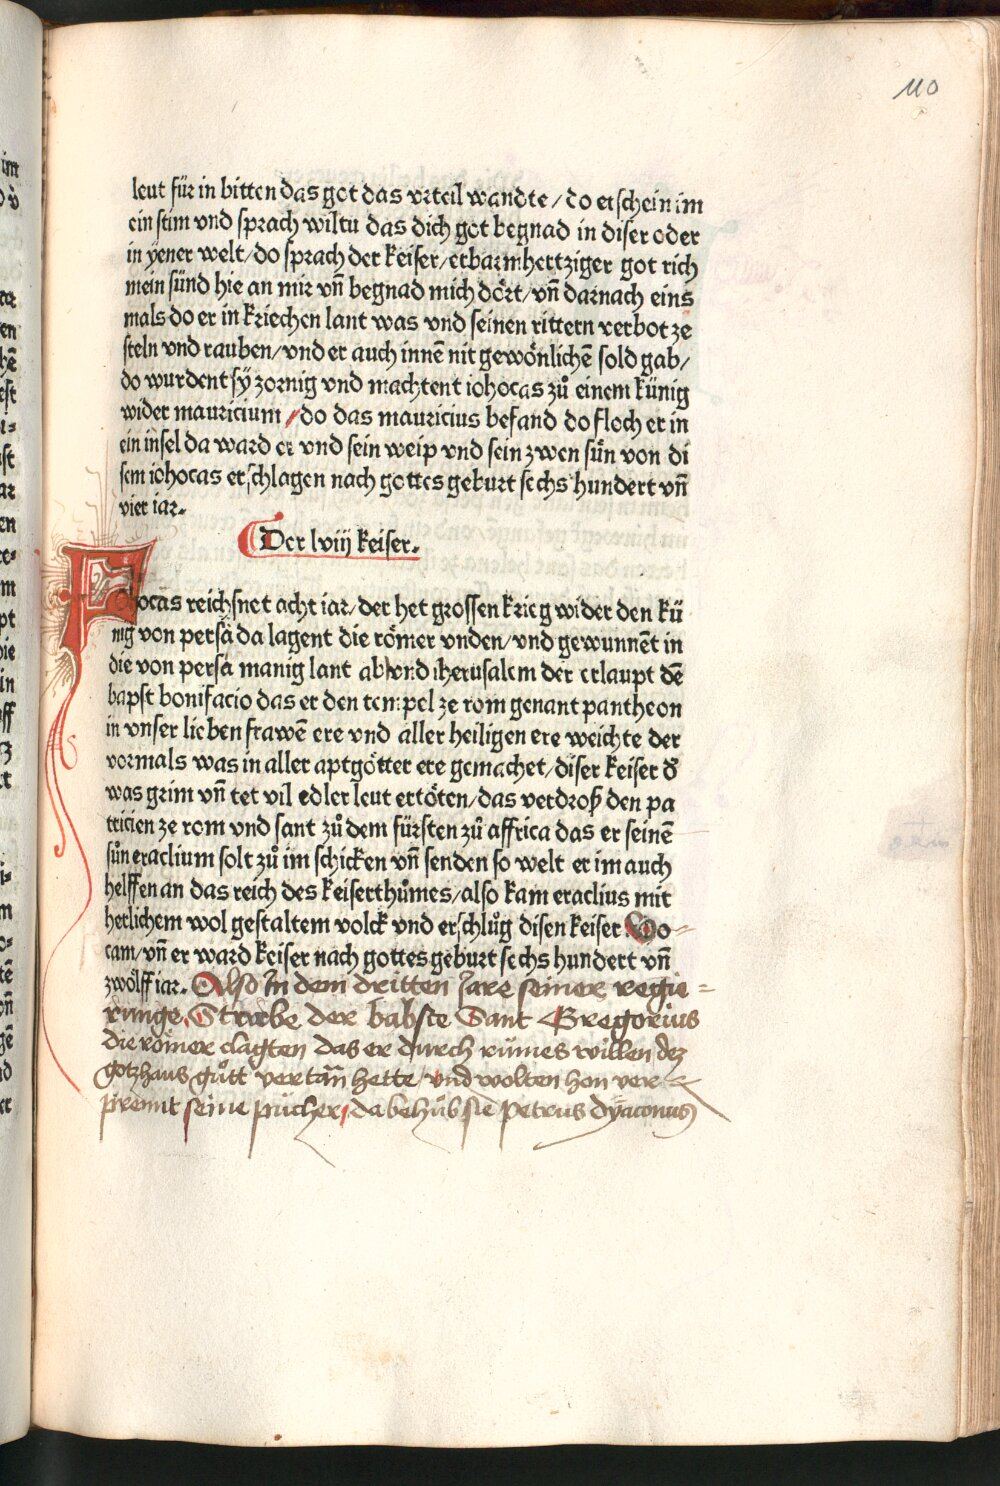 110
leut für in bitten das got das vrteil wandte / do erschein im
ein stim vnd sprach wiltu das dich got begnad in diser oder
in yener welt / do sprach der keiser / erbarmhertziger got rich
mein sünd hie an mir vn̄ begnad mich dört / vn̄ darnach eins
mals do er in kriechen lant was vnd seinen rittern verbot ze
steln vnd rauben / vnd er auch innē nit gewönlichē sold gab /
do wurdent sÿ zornig vnd machtent iohocas zů einem künig
wider mauricium / do das mauricius befand do floch er in
ein insel da ward er vnd sein weip vnd sein zwen sün von di
sem iohocas erschlagen nach gottes geburt sechs hundert vn̄
vier iar.
Der lviij keiser.
Focas reichsnet acht iar / der het grossen krieg wider den kü
nig von persā da lagent die römer vnden / vnd gewunnēt in
die von persā manig lant ab vnd iherusalem der erlaupt dē
bapst bonifacio das er den tempel ze rom genant pantheon
in vnser lieben frawē ere vnd aller heiligen ere weichte der
vormals was in aller aptgötter ere gemachet / diser keiser d̄
was grim vn̄ tet vil edler leut ertöten / das verdroß den pa
tricien ze rom vnd sant zů dem fürsten zů affrica das er seinē
sůn eraclium solt zů im schicken vn̄ senden so welt er im auch
helffen an das reich des keiserthůmes / also kam eraclius mit
herlichem wol gestaltem volck vnd erschlůg disen keiser Vo
cam / vn̄ er ward keiser nach gottes geburt sechs hundert vn̄
zwölff iar. Also In dem dritten Jare seiner regie =
runge, Strarbe der babste Sant Gregorius
die römer clagten das er durch rumes willen dez
gotzhaus gůtt vertān hette vnd wolten hen ver =
prennt seine pücher / da behůb sie Petrus dÿaconus